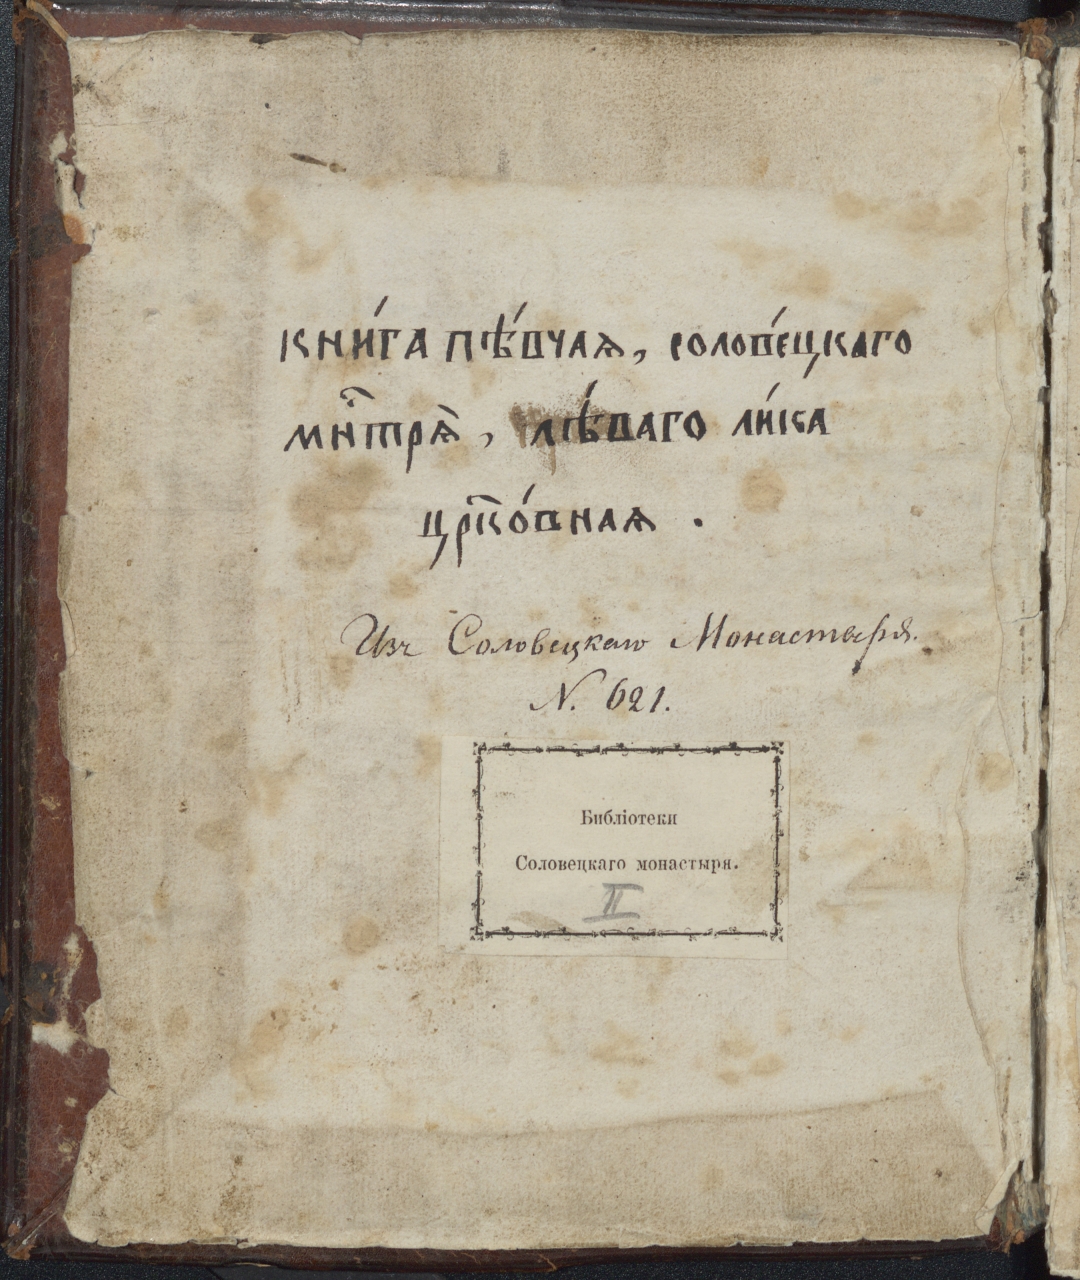 кни́га пѣ́вчая, солове́цкаго
мн҃тря̑, лѣ́ваго ли́ка
цр҃ко́вная .
Изъ Соловецкаго Монастыря.
N. 621.
Библіотеки
Соловецкаго монастыря.
II